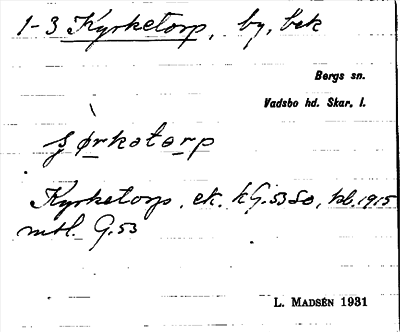 1-3 Kyrketorp, by, bek
Bergs sn.
Vadsbo hd. Skar. l.
Kyrketorp, ek. kG.53 So, kl. 1915
mtl. G.53
L. MADSÉN 1931